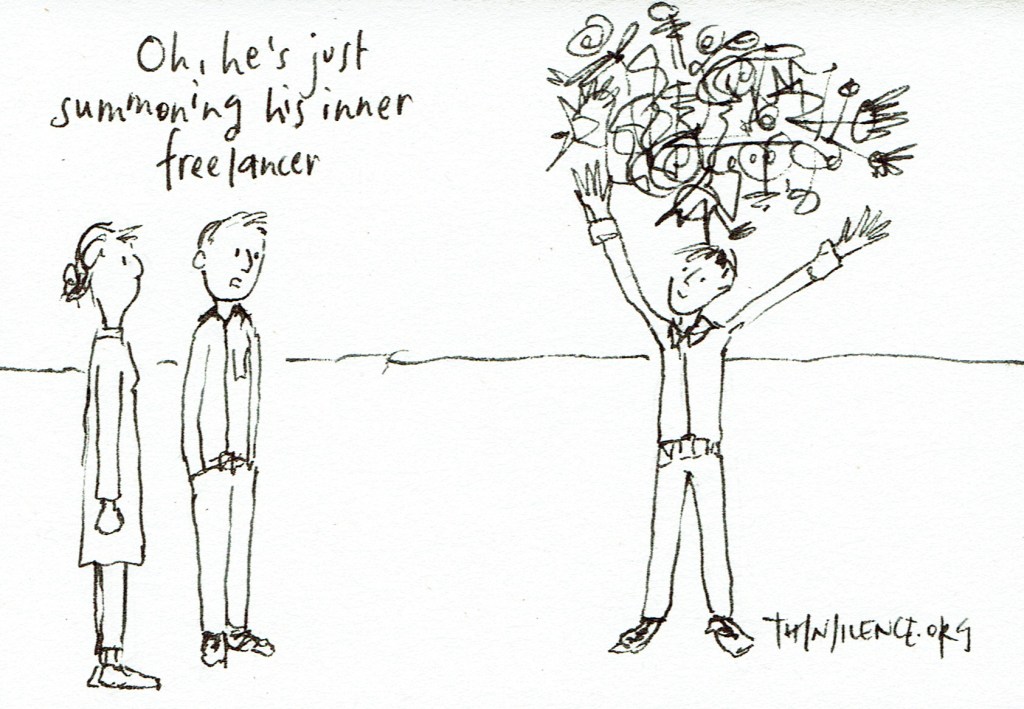 Oh, he's just
summoning his inner
freelancer
TH/N/ILENCE.ORG